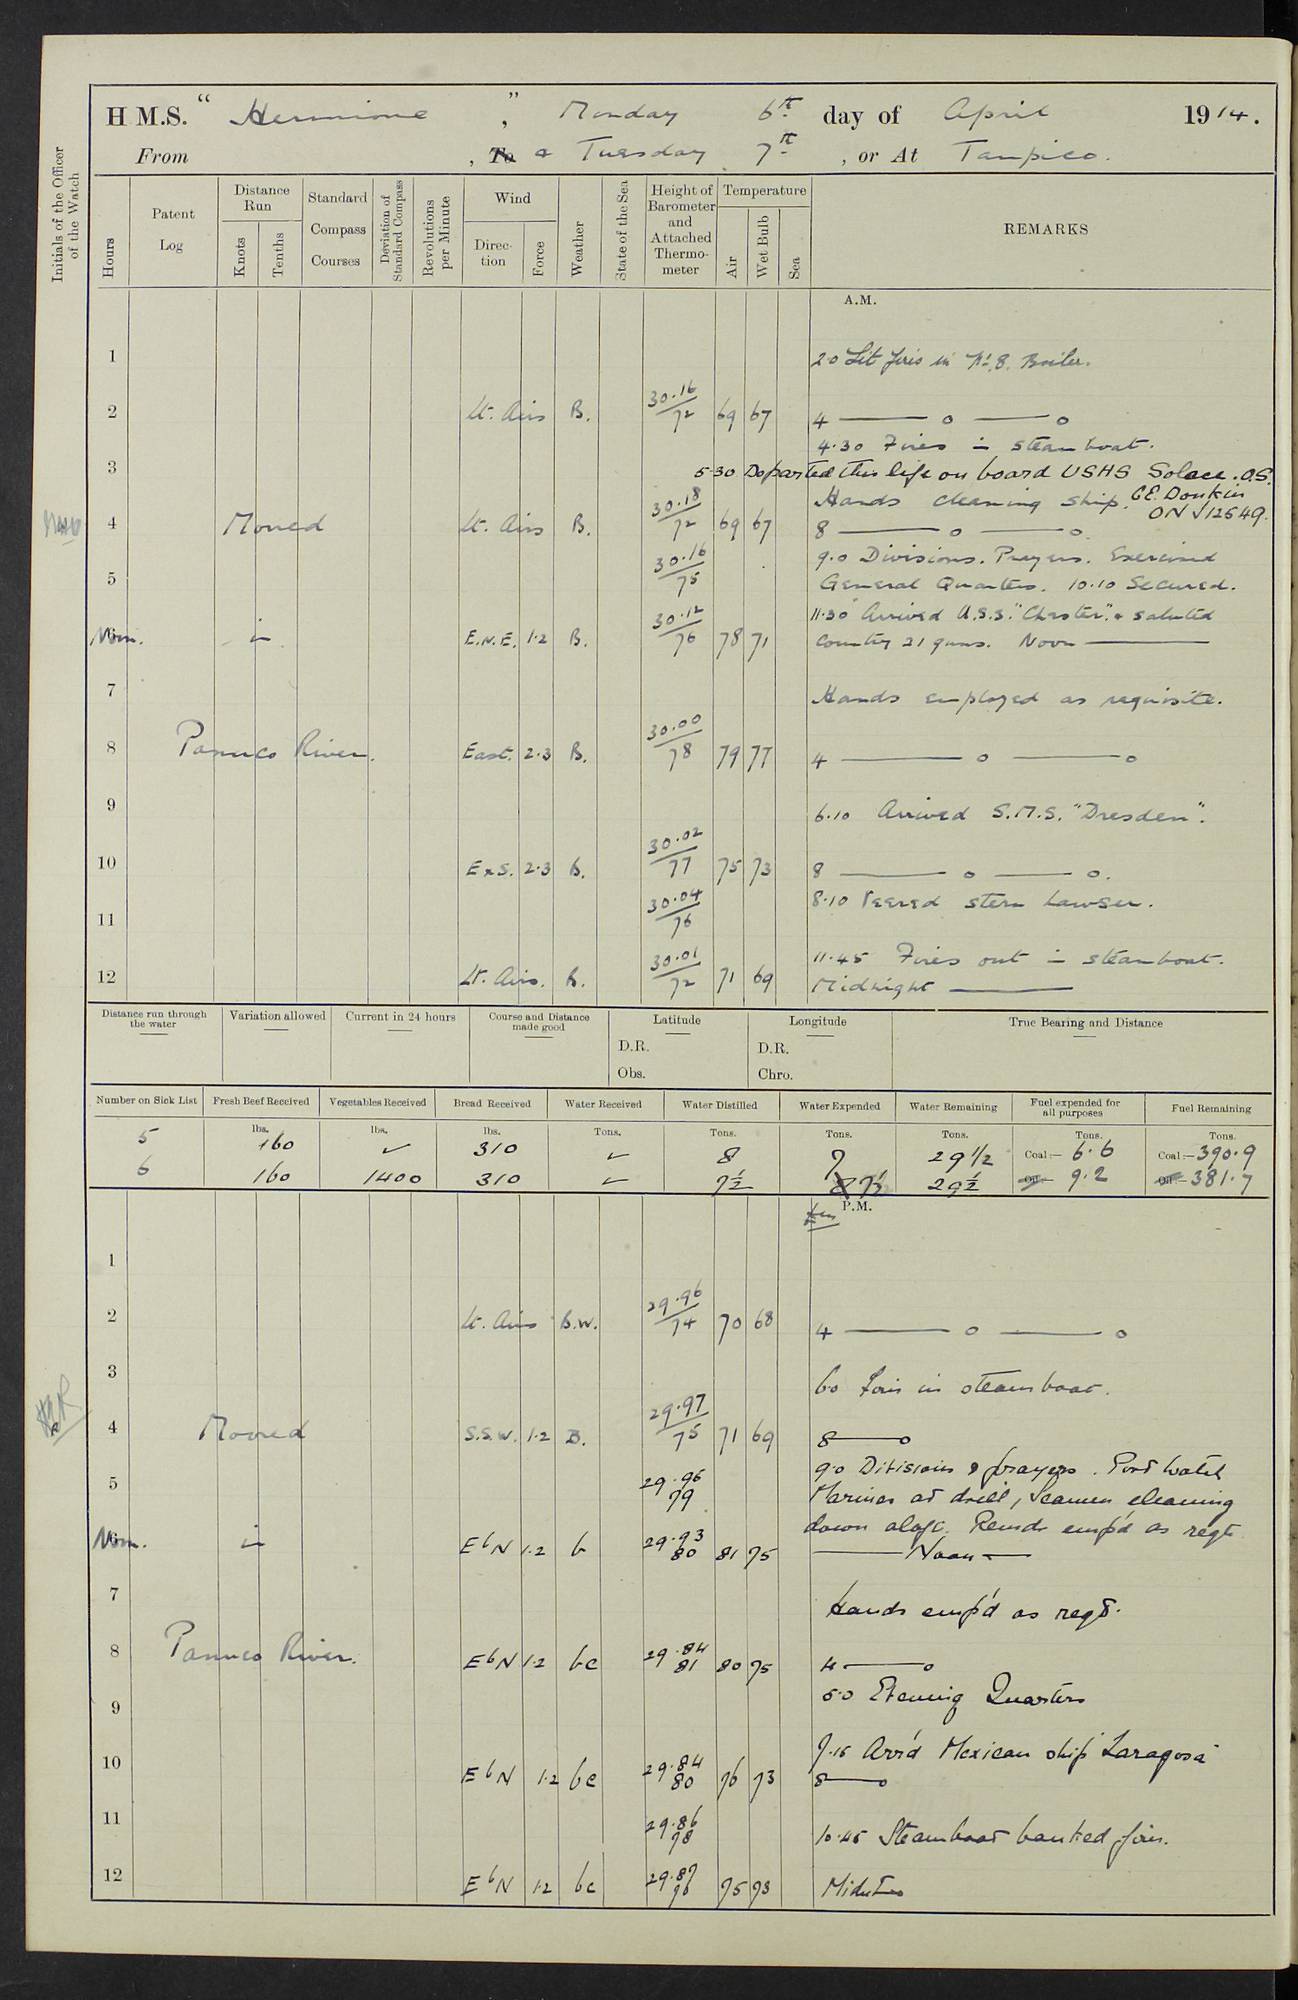 H.M.S. "Hermione", Monday 6th day of April 1914.
From , To & Tuesday 7th , or At Tampico.
Initials of the Officer of the Watch
Hours
Patent Log
Distance Run
Knots
Tenths
Standard Compass Courses
Deviation of Standard Compass
Revolutions per Minute
Wind
Direction
Force
Weather
State of the Sea
Height of Barometer and Attached Thermometer
Temperature
Air
Wet Bulb
Sea
REMARKS
A.M.
1
2.0 Lit fires in No. 8. Boiler.
2 Lt. Airs B. 30.16 72 69 67 4 —— o —— o
4.30 Fires in steam boat.
3
5.30 Departed this life on board USHS Solace. O.S.
C.E. Donkin
ON J12649.
Hands cleaning ship.
4 Moored Lt. Airs B. 30.18 72 69 67 8 —— o —— o
9.0 Divisions. Prayers. Exercised
5 30.16 75
General Quarters. 10.10 Secured.
11.30 Arrived U.S.S. "Chester" & saluted
Noon. in E.N.E. 1.2 B. 30.12 76 78 71 Country 21 guns. Noon ——
7 Hands employed as requisite.
8 Panuco River. East. 2.3 B. 30.00 78 79 77 4 —— o —— o
9
6.10 Arrived S.M.S. "Dresden".
10 ExS. 2.3 B. 30.02 77 75 73 8 —— o —— o.
8.10 Veered stern hawser.
11 30.04 76
11.45 Fires out in steamboat.
12 Lt. Airs. B. 30.01 72 71 69 Midnight ——
Distance run through the water
Variation allowed
Current in 24 hours
Course and Distance made good
Latitude
D.R.
Obs.
Longitude
D.R.
Chro.
True Bearing and Distance
Number on Sick List
Fresh Beef Received
Vegetables Received
Bread Received
Water Received
Water Distilled
Water Expended
Water Remaining
Fuel expended for all purposes
Fuel Remaining
lbs. lbs. lbs. Tons. Tons. Tons. Tons. Tons. Tons.
5 160 ✓ 310 ✓ 8 7 29 1/2 Coal:— 6.6 Coal:— 390.9
6 160 1400 310 ✓ 7½ 8 7½ 29½ Oil:— 9.2 Oil:— 381.7
P.M.
1
2 Lt. Airs B.W. 29.96 74 70 68 4 —— o —— o
3
6.0 Fires in steamboat.
4 Moored S.S.W. 1.2 B. 29.97 75 71 69 8 —— o
9.0 Divisions & prayers. Port Watch
5 29.96 79
Marines at drill, Seamen cleaning
down aloft. Remdr emp'd as reqte
Noon. in EbN 1.2 b 29.93 80 81 75 —— Noon ——
7
Hands emp'd as reqd.
8 Panuco River. EbN 1.2 bc 29.84 81 80 75 4 —— o
5.0 Evening Quarters
9
7.15 Arr'd Mexican ship "Zaragosa"
10 EbN 1.2 bc 29.84 80 76 73 8 —— o
11 29.86 78
10.45 Steamboat banked fires.
12 EbN 1.2 bc 29.87 75 73